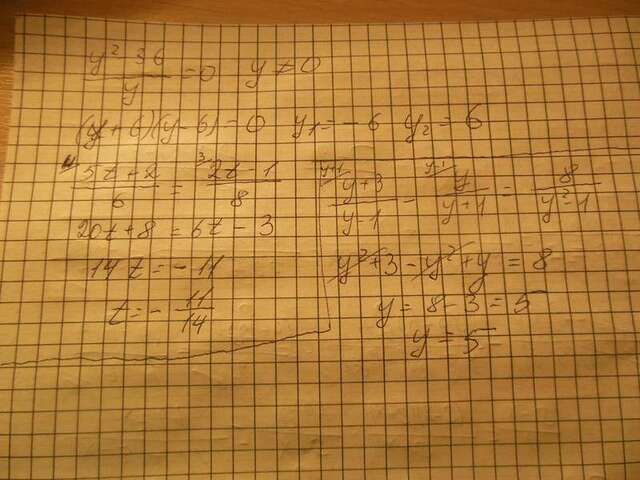 y² 36 / y = 0   y ≠ 0
(y + 6)(y - 6) = 0   y₁ = -6   y₂ = 6
4 5t + 2 / 6 = 3 2t - 1 / 8
20t + 8 = 6t - 3
14t = -11
t = - 11 / 14
y+1 y+3 / y-1 - y-1 y / y+1 = 8 / y²-1
y² + 3 - y² + y = 8
y = 8 - 3 = 5
y = 5